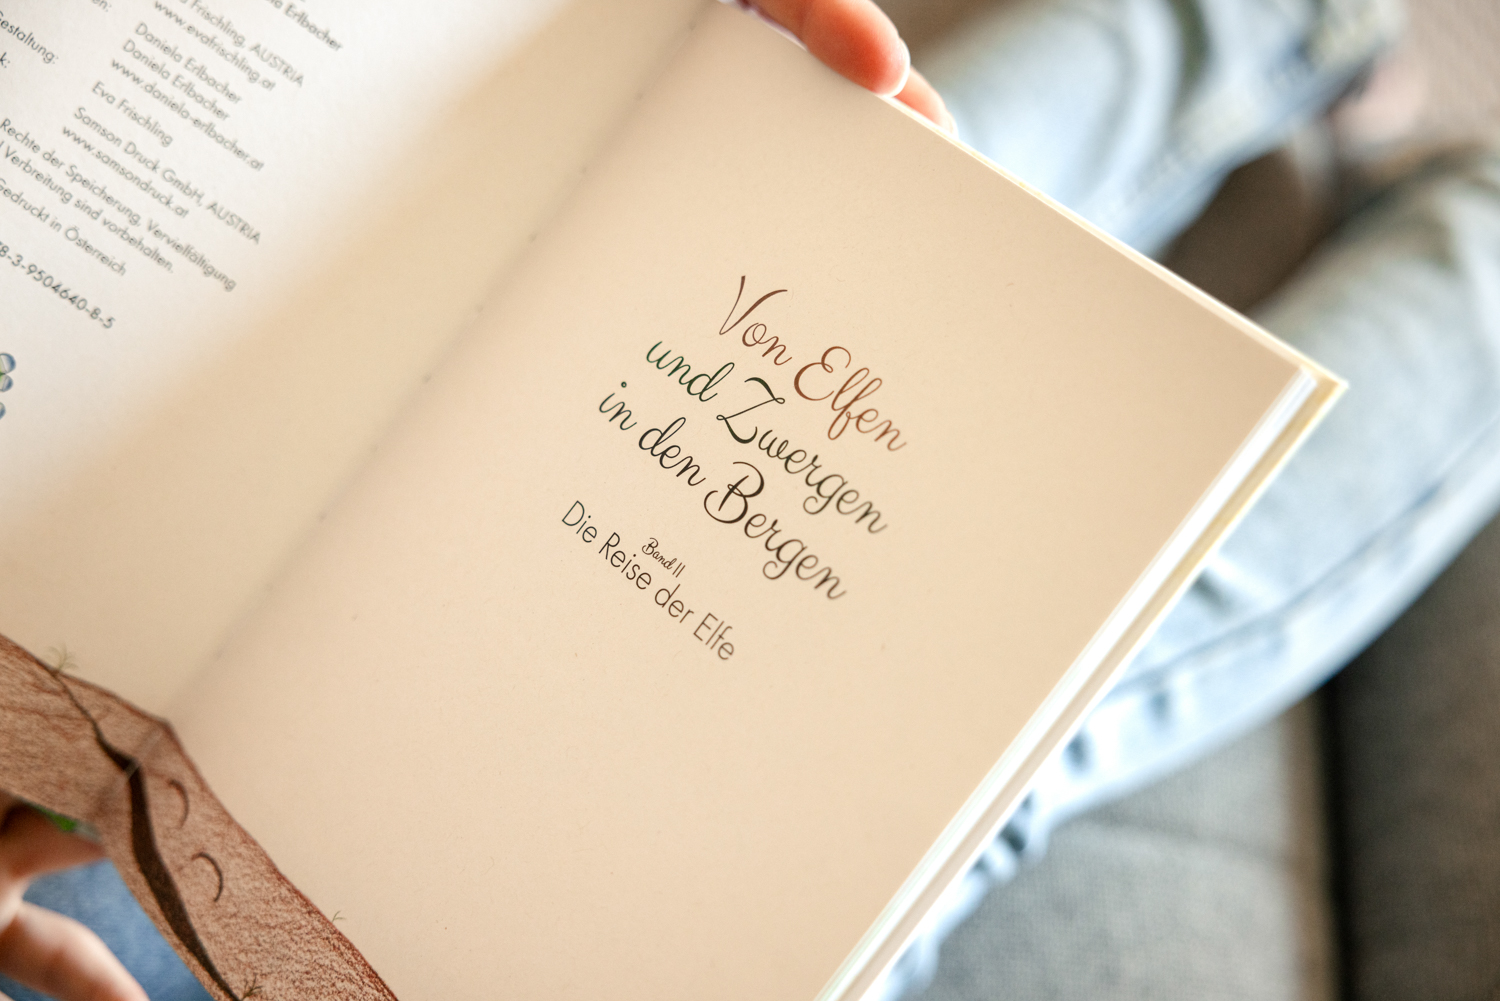 Erlbacher
Frischling, AUSTRIA
www.evafrischling.at
Daniela Erlbacher
Daniela Erlbacher
www.daniela-erlbacher.at
Eva Frischling
Samson Druck GmbH, AUSTRIA
www.samsondruck.at
Rechte der Speicherung, Vervielfältigung
Verbreitung sind vorbehalten.
Gedruckt in Österreich
8-3-9504640-8-5
Von Elfen
und Zwergen
in den Bergen
Band II
Die Reise der Elfe